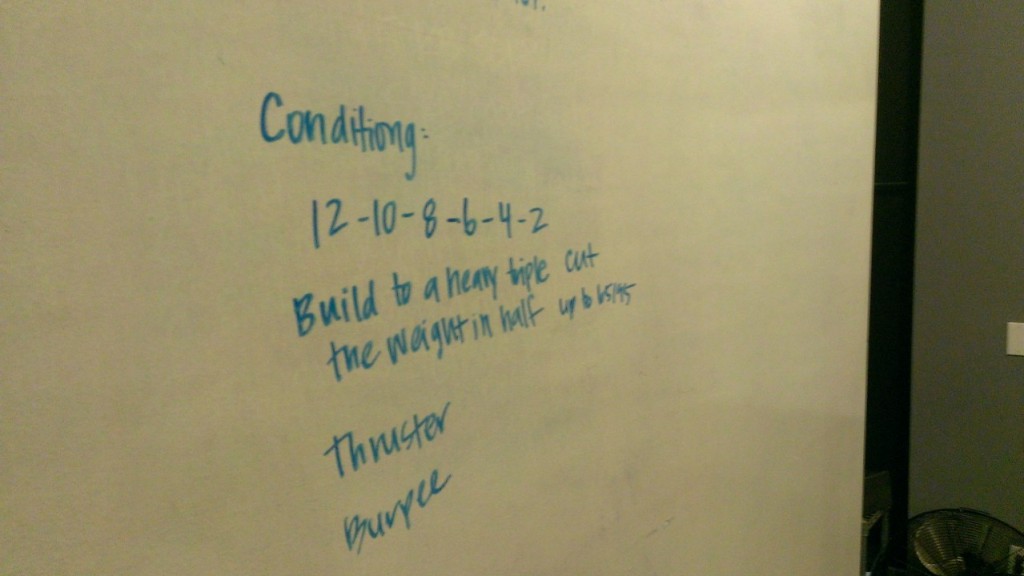 Conditiong:
12-10-8-6-4-2
Build to a heavy triple cut
the weight in half up to 65/45
Thruster
Burpee